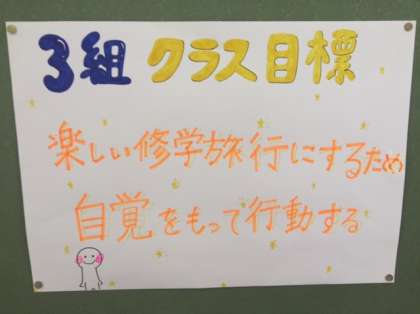 3組 クラス目標
楽しい修学旅行にするため
自覚をもって行動する